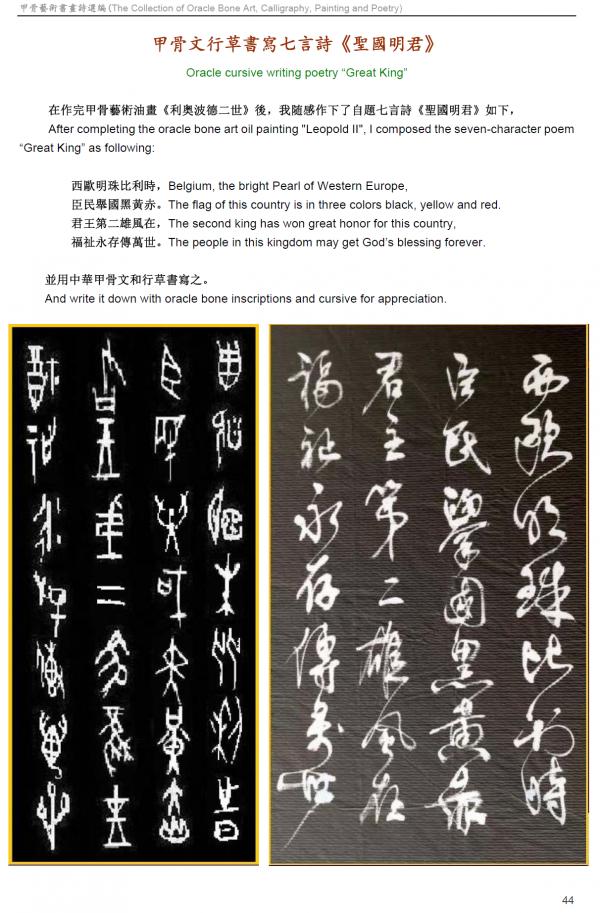 甲骨藝術書畫詩選編(The Collection of Oracle Bone Art, Calligraphy, Painting and Poetry)
甲骨文行草書寫七言詩《聖國明君》
Oracle cursive writing poetry “Great King”
在作完甲骨藝術油畫《利奧波德二世》後，我隨感作下了自題七言詩《聖國明君》如下，
After completing the oracle bone art oil painting "Leopold II", I composed the seven-character poem
“Great King” as following:
西歐明珠比利時，Belgium, the bright Pearl of Western Europe,
臣民舉國黑黃赤。The flag of this country is in three colors black, yellow and red.
君王第二雄風在，The second king has won great honor for this country,
福祉永存傳萬世。The people in this kingdom may get God’s blessing forever.
並用中華甲骨文和行草書寫之。
And write it down with oracle bone inscriptions and cursive for appreciation.
西歐明珠比利時
臣民舉國黑黃赤
君王第二雄風在
福祉永存傳萬世
西歐明珠比利時
臣民舉國黑黃赤
君主第二雄風在
福祉永存傳萬世
44